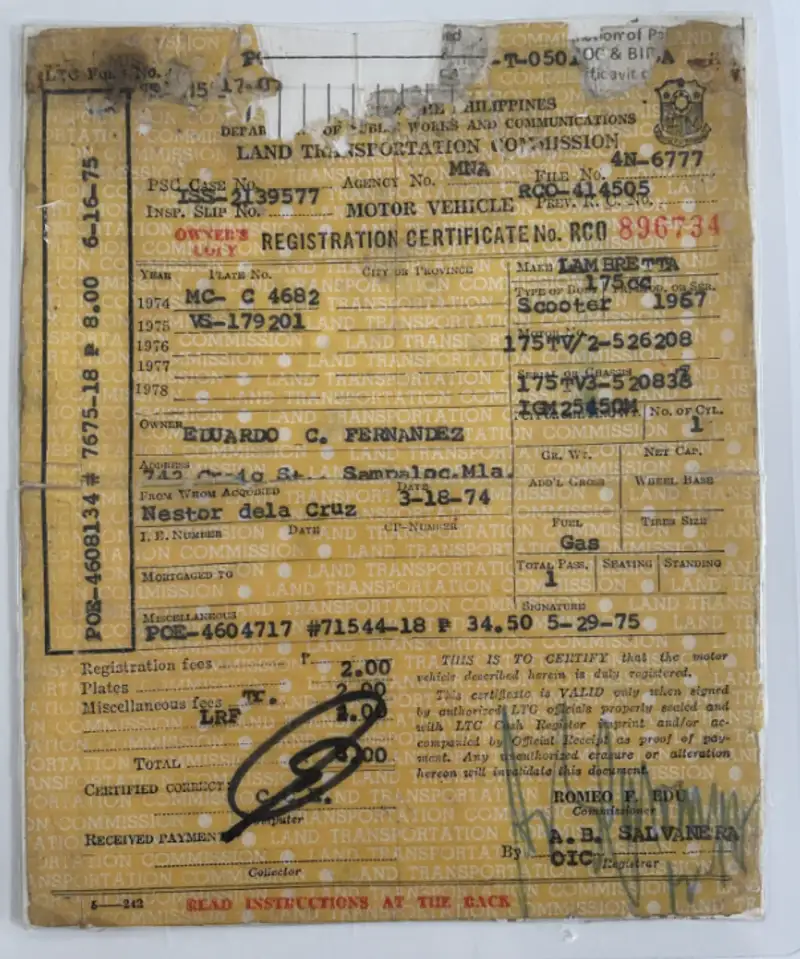 -T-050
OC & BIR
LTC Form No.
17-0
THE PHILIPPINES
OF PUBLIC WORKS AND COMMUNICATIONS
LAND TRANSPORTATION COMMISSION
PSC CASE No. AGENCY No. MNA FILE No. 4N-6777
ISS-2139577 RCO-414505
INSP. SLIP No. MOTOR VEHICLE PREV. R. C. No.
OWNER'S COPY REGISTRATION CERTIFICATE No. RCO 896734
YEAR PLATE No. CITY OR PROVINCE MAKE LAMBRETTA
175cc
1974 MC- C 4682 Scooter 1967
1975 VS-179201
1976 MOTOR No. 175TV/2-526208
1977 SERIAL OR CHASSIS
1978 175TV3-520838
IGM25450M No. OF CYL. 1
OWNER EDUARDO C. FERNANDEZ
GR. WT. NET CAP.
ADDRESS 742 Craig St., Sampaloc,Mla.
ADD'L GROSS WHEEL BASE
FROM WHOM ACQUIRED DATE 3-18-74
Nestor dela Cruz
FUEL Gas TIRES SIZE
I. E. NUMBER DATE CP-NUMBER
MORTGAGED TO TOTAL PASS. 1 SEATING STANDING
MISCELLANEOUS SIGNATURE
POE-4604717 #71544-18 ₱ 34.50 5-29-75
POE-4608134# 7675-18 ₱ 8.00 6-16-75
Registration fees ₱ 2.00
Plates 2.00
Miscellaneous fees Tr.
LRF
TOTAL
CERTIFIED CORRECT:
RECEIVED PAYMENT
Collector
THIS IS TO CERTIFY that the motor
vehicle described herein is duly registered.
This certificate is VALID only when signed
by authorized LTC officials properly sealed and
with LTC Cash Register imprint and/or ac-
companied by Official Receipt as proof of pay-
ment. Any unauthorized erasure or alteration
hereon will invalidate this document.
ROMEO F. EDU
Commissioner
A.B. SALVANERA
By OIC Registrar
5—242 READ INSTRUCTIONS AT THE BACK